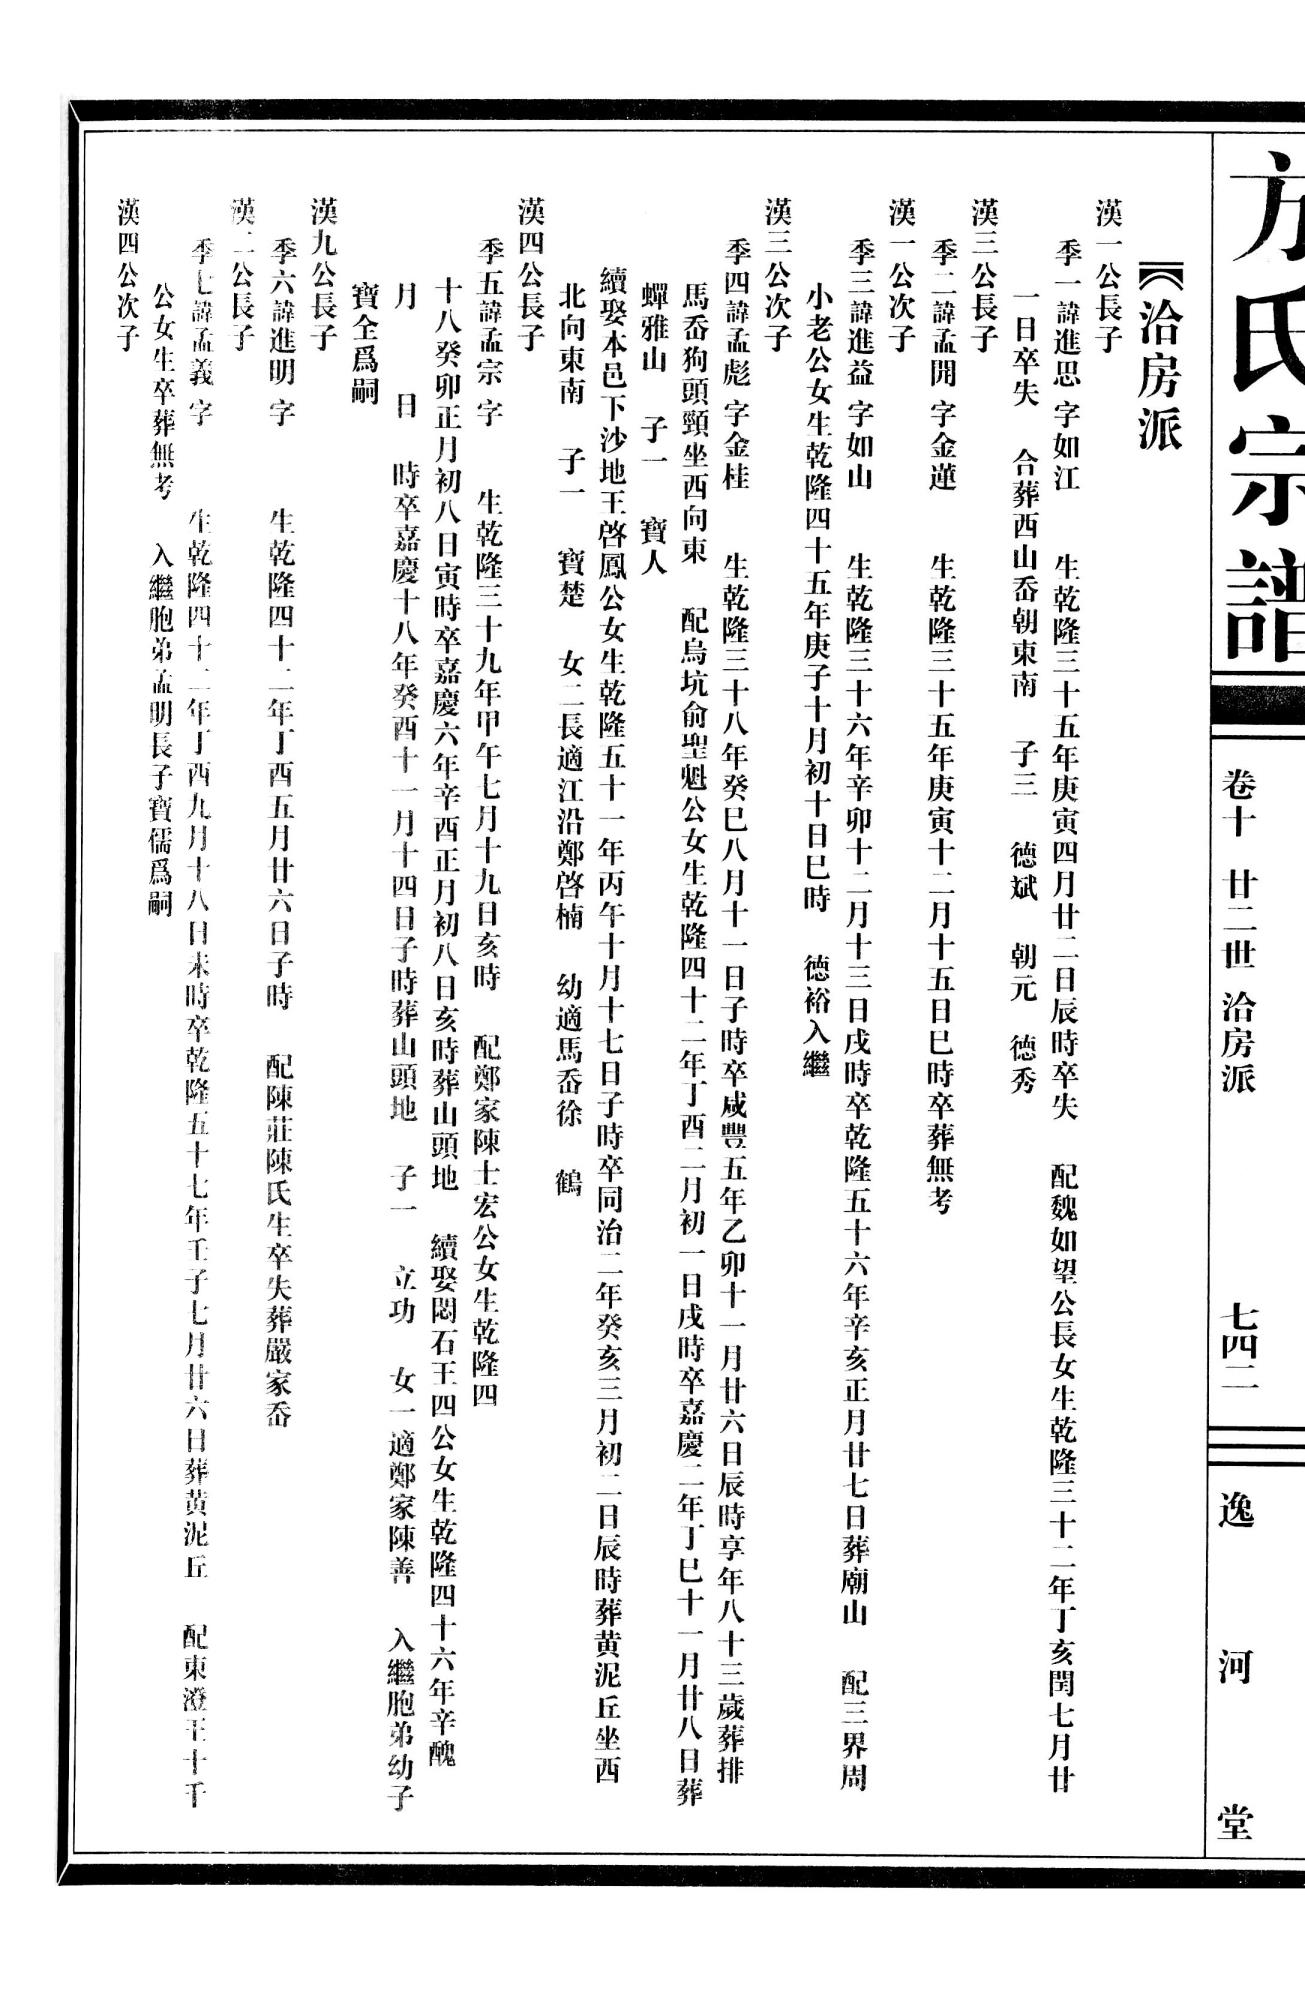 方氏宗譜
卷十 廿二世 洽房派
七四二
逸河堂
洽房派
漢一公長子
季一諱進思 字如江 生乾隆三十五年庚寅四月廿二日辰時卒失 配魏如望公長女生乾隆三十二年丁亥閏七月廿
一日卒失 合葬西山岙朝東南 子三 德斌 朝元 德秀
漢三公長子
季二諱孟開 字金蓮 生乾隆三十五年庚寅十二月十五日巳時卒葬無考
漢一公次子
季三諱進益 字如山 生乾隆三十六年辛卯十二月十三日戌時卒乾隆五十六年辛亥正月廿七日葬廟山 配三界周
小老公女生乾隆四十五年庚子十月初十日巳時 德裕入繼
漢三公次子
季四諱孟彪 字金桂 生乾隆三十八年癸巳八月十一日子時卒咸豐五年乙卯十一月廿六日辰時享年八十三歲葬排
馬岙狗頭頸坐西向東 配烏坑俞聖魁公女生乾隆四十二年丁酉二月初一日戌時卒嘉慶二年丁巳十一月廿八日葬
蟬雅山 子一 寶人
續娶本邑下沙地王啓鳳公女生乾隆五十一年丙午十月十七日子時卒同治二年癸亥三月初二日辰時葬黃泥丘坐西
北向東南 子一 寶楚 女二長適江沿鄭啓楠 幼適馬岙徐 鶴
漢四公長子
季五諱孟宗 字 生乾隆三十九年甲午七月十九日亥時 配鄭家陳士宏公女生乾隆四
十八癸卯正月初八日寅時卒嘉慶六年辛酉正月初八日亥時葬山頭地 續娶悶石王四公女生乾隆四十六年辛醜
月 日 時卒嘉慶十八年癸酉十一月十四日子時葬山頭地 子一 立功 女一適鄭家陳善 入繼胞弟幼子
寶全爲嗣
漢九公長子
季六諱進明 字 生乾隆四十二年丁酉五月廿六日子時 配陳莊陳氏生卒失葬嚴家岙
漢二公長子
季七諱孟義 字 生乾隆四十二年丁酉九月十八日未時卒乾隆五十七年壬子七月廿六日葬黃泥丘 配東澄王十千
公女生卒葬無考 入繼胞弟孟明長子寶儒爲嗣
漢四公次子